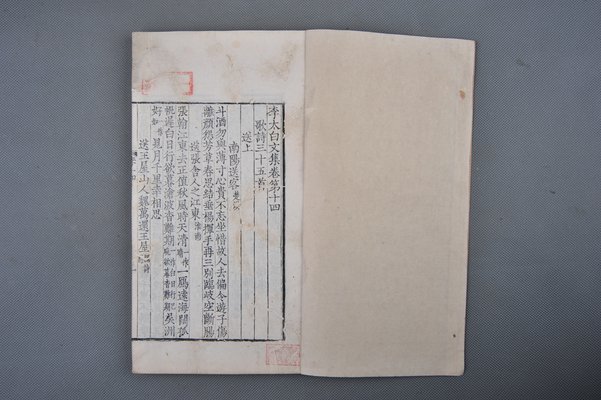 李太白文集卷第十四
歌詩三十五首
送上
南陽送客
斗酒勿與薄寸心貴不忘坐惜故人去偏令遊子傷
離顏怨芳草春思結垂楊揮手再三別臨岐空斷腸
送張舍人之江東
張翰江東去正值秋風時天清一鴈遠海闊孤
帆遲白日行欲暮滄波杳難期吳洲
好如見月千里幸相思
送王屋山人魏萬還王屋